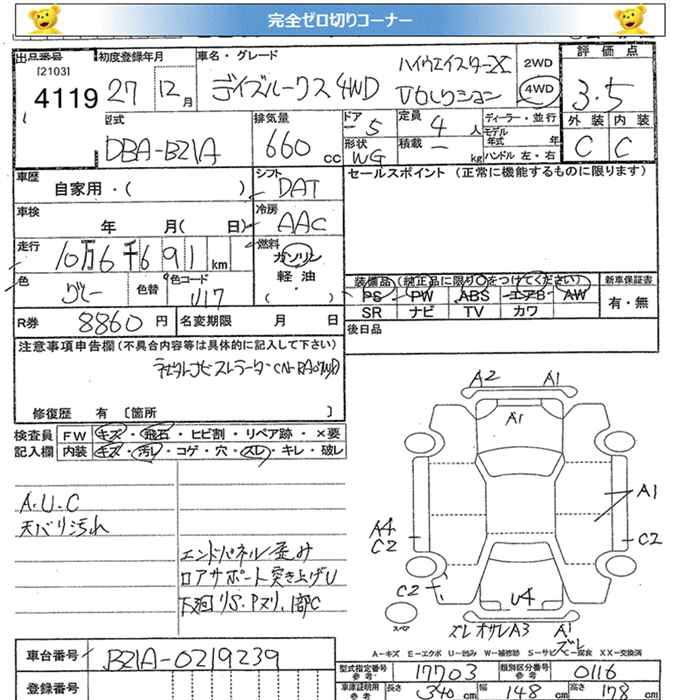 完全ゼロ切りコーナー
出品番号 初度登録年月 車名・グレード 評価点
[2103]
4119 27 12月 デイズルークス4WD ハイウェイスターX Vセレクション 2WD 4WD 3.5
型式 排気量 ドア 定員 ディーラー・並行 外装 内装
DBA-B21A 660cc 5 4人 モデル年式 年 C C
形状 WG 積載 - kg ハンドル 左・右
車歴 自家用・( ) シフト DAT セールスポイント (正常に機能するものに限ります)
車検 年 月( 日) 冷房 AAC
走行 10万6千691km 燃料 ガソリン
軽油
・( )
色 グレー 色替 色コード U17
装備品(純正品に限り○をつけてください) 新車保証書
PS PW ABS エアB AW 有・無
SR ナビ TV カワ
R券 8860円 名変期限 月 日 後日品
注意事項申告欄(不具合内容等は具体的に記入して下さい)
CN-RA04WD
修復歴 有 〔箇所 〕
検査員 FW キズ・飛石・ヒビ割・リペア跡・×要
記入欄 内装 キズ・汚レ・コゲ・穴・スレ・キレ・破レ
A2 A1
A1
A1
A.U.C
天バリ汚れ
A4
C2
C2
エンドパネル歪み
ロアサポート突き上げU
下廻りS.Pズリ、1部C
C2
U4
スペア
ズレ オサレA3 A1
ズレ
A-キズ E-エクボ U-凹み W-補修跡 S-サビ C-腐食 XX-交換済
車台番号 B21A-0219239
型式指定番号 参考 17703 類別区分番号 参考 0116
登録番号
車庫証明用 参考 長さ 340cm 幅 148cm 高さ 178cm